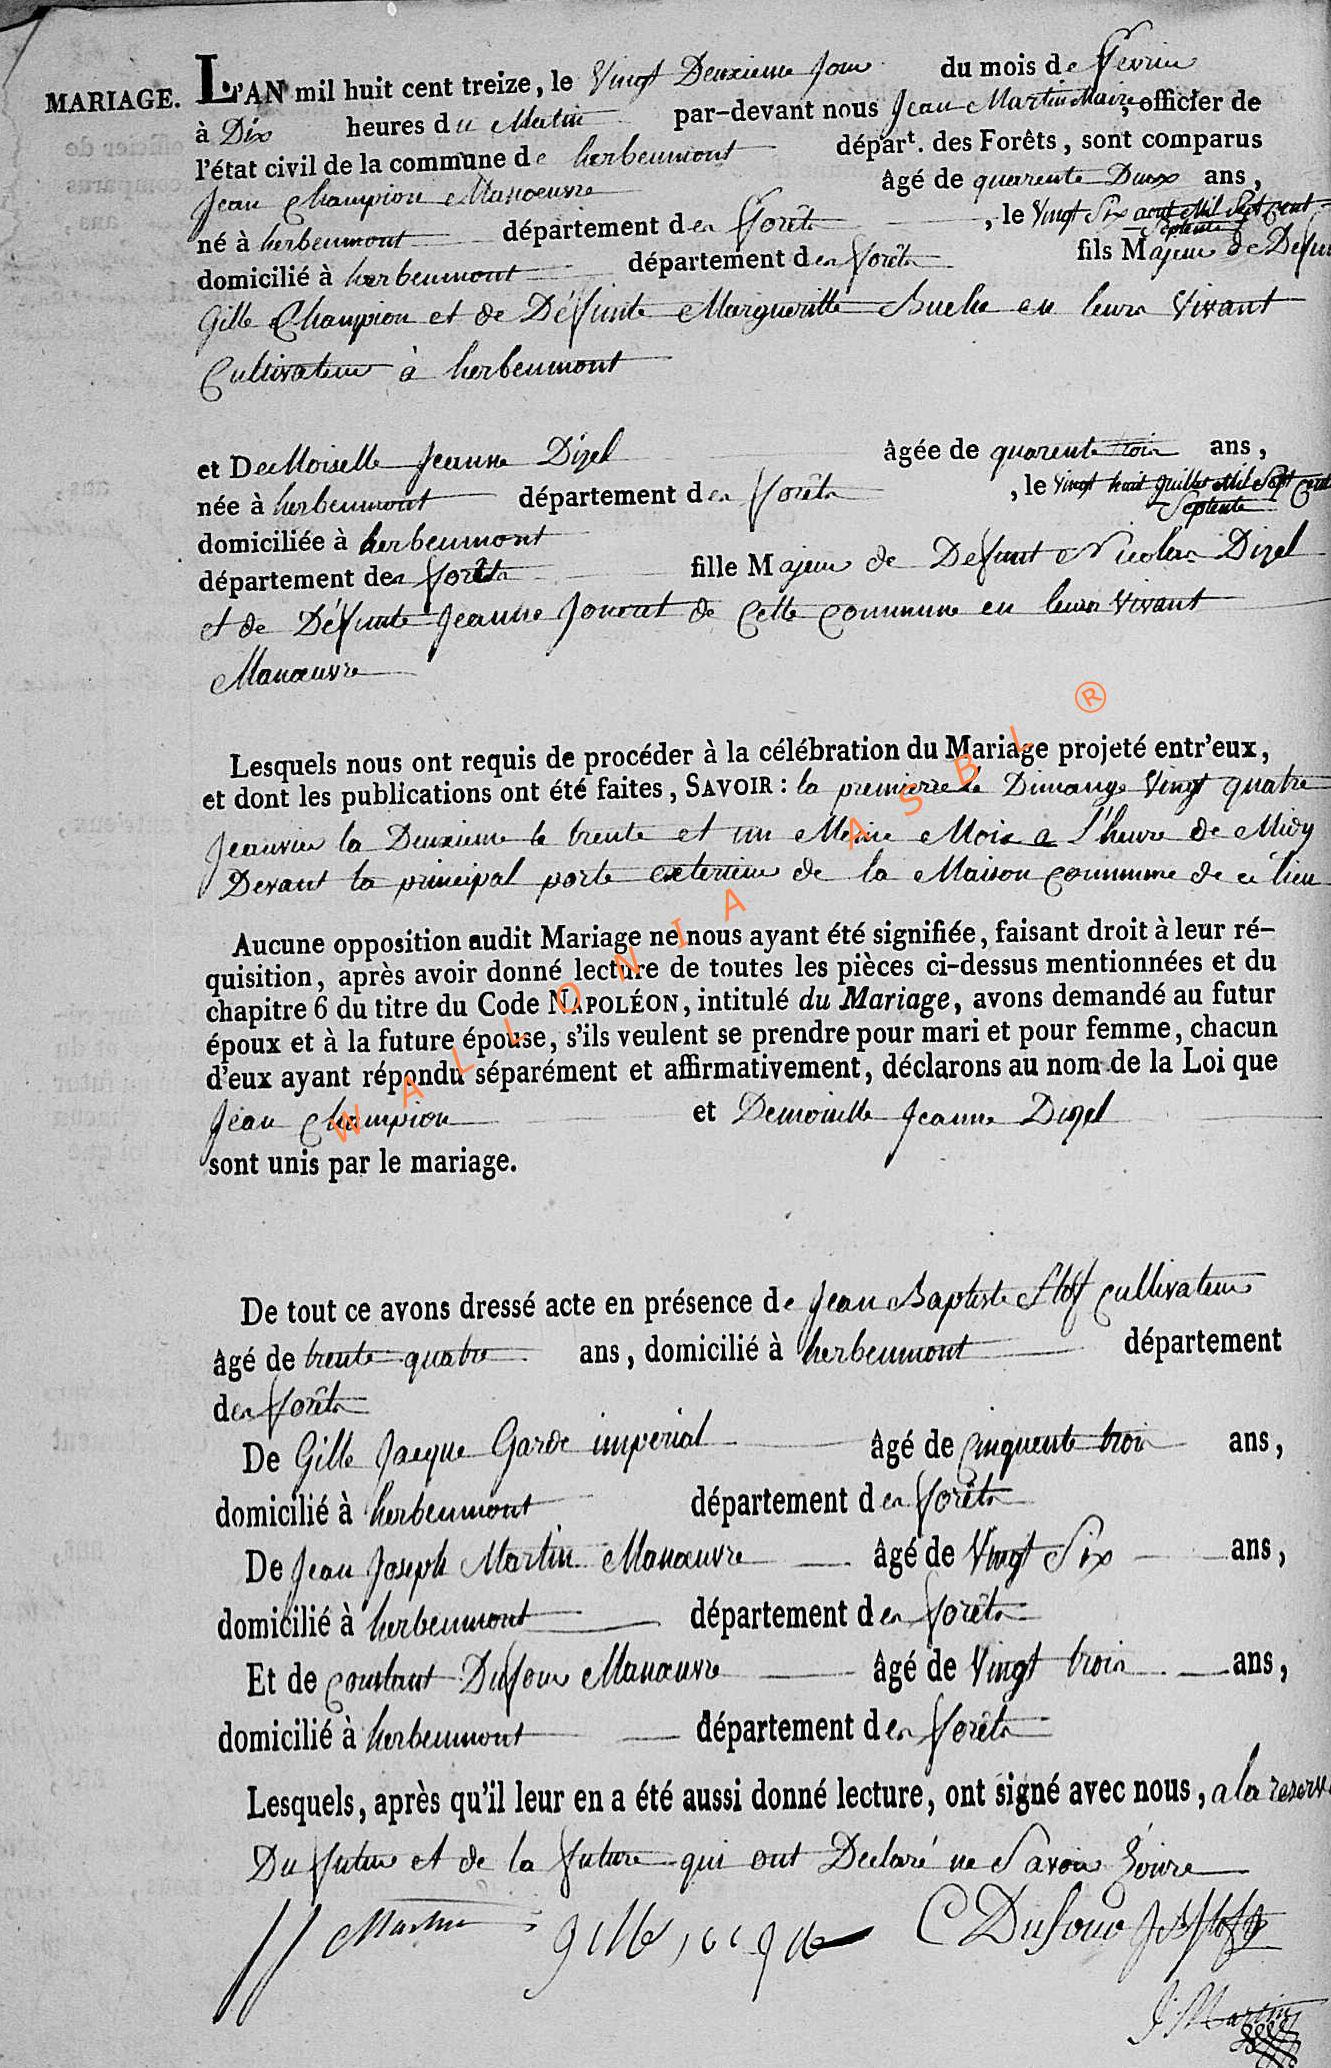 MARIAGE.
L'AN mil huit cent treize, le Vingt Deuxieme Jour du mois de fevrier
à Dix heures du Matin par-devant nous Jean Martin Maire, officier de
l'état civil de la commune de herbeumont départ. des Forêts, sont comparus
Jean Champion Manoeuvre âgé de quarente Deux ans,
né à herbeumont département des forêts, le Vingt Six aout Mil Sept Cent
Septente
domicilié à herbeumont département des forêts fils Majeur de Defunt
Gille Champion et de Défunte Margueritte en leurs Vivant
Cultivateur à herbeumont
et DeMoiselle Jeanne Dizel âgée de quarente trois ans,
née à herbeumont département des forêts, le Vingt huit Mil Sept Cent
Septente
domiciliée à herbeumont
département des forêts fille Majeur de Defunt Nicolas Dizel
et de Défunte Jeanne de Cette commune en leurs Vivant
Manœuvre
Lesquels nous ont requis de procéder à la célébration du Mariage projeté entr'eux,
et dont les publications ont été faites, SAVOIR : la premierre le Dimange Vingt quatre
Jeanvier la Deuxieme le trente et un Meme Mois a l'heure de Midy
Devant la principal porte exterieur de la Maison commune de ce lieu
Aucune opposition audit Mariage ne nous ayant été signifiée, faisant droit à leur ré-
quisition, après avoir donné lecture de toutes les pièces ci-dessus mentionnées et du
chapitre 6 du titre du Code NAPOLÉON, intitulé du Mariage, avons demandé au futur
époux et à la future épouse, s'ils veulent se prendre pour mari et pour femme, chacun
d'eux ayant répondu séparément et affirmativement, déclarons au nom de la Loi que
Jean Champion et Demoiselle Jeanne Dizel
sont unis par le mariage.
WALLONIA ASBL ®
De tout ce avons dressé acte en présence de Jean Baptiste cultivateur
âgé de trente quatre ans, domicilié à herbeumont département
des forêts
De Gille Jacque Garde imperial âgé de Cinquente trois ans,
domicilié à herbeumont département des forêts
De Jean Joseph Martin Manœuvre âgé de Vingt Six ans,
domicilié à herbeumont département des forêts
Et de Constant Dufour Manœuvre âgé de Vingt trois ans,
domicilié à herbeumont département des forêts
Lesquels, après qu'il leur en a été aussi donné lecture, ont signé avec nous, a la reserve
Du futur et de la future qui ont Declaré ne Savoir Ecrire
JJ Martin gille jacque C Dufour
J Martin